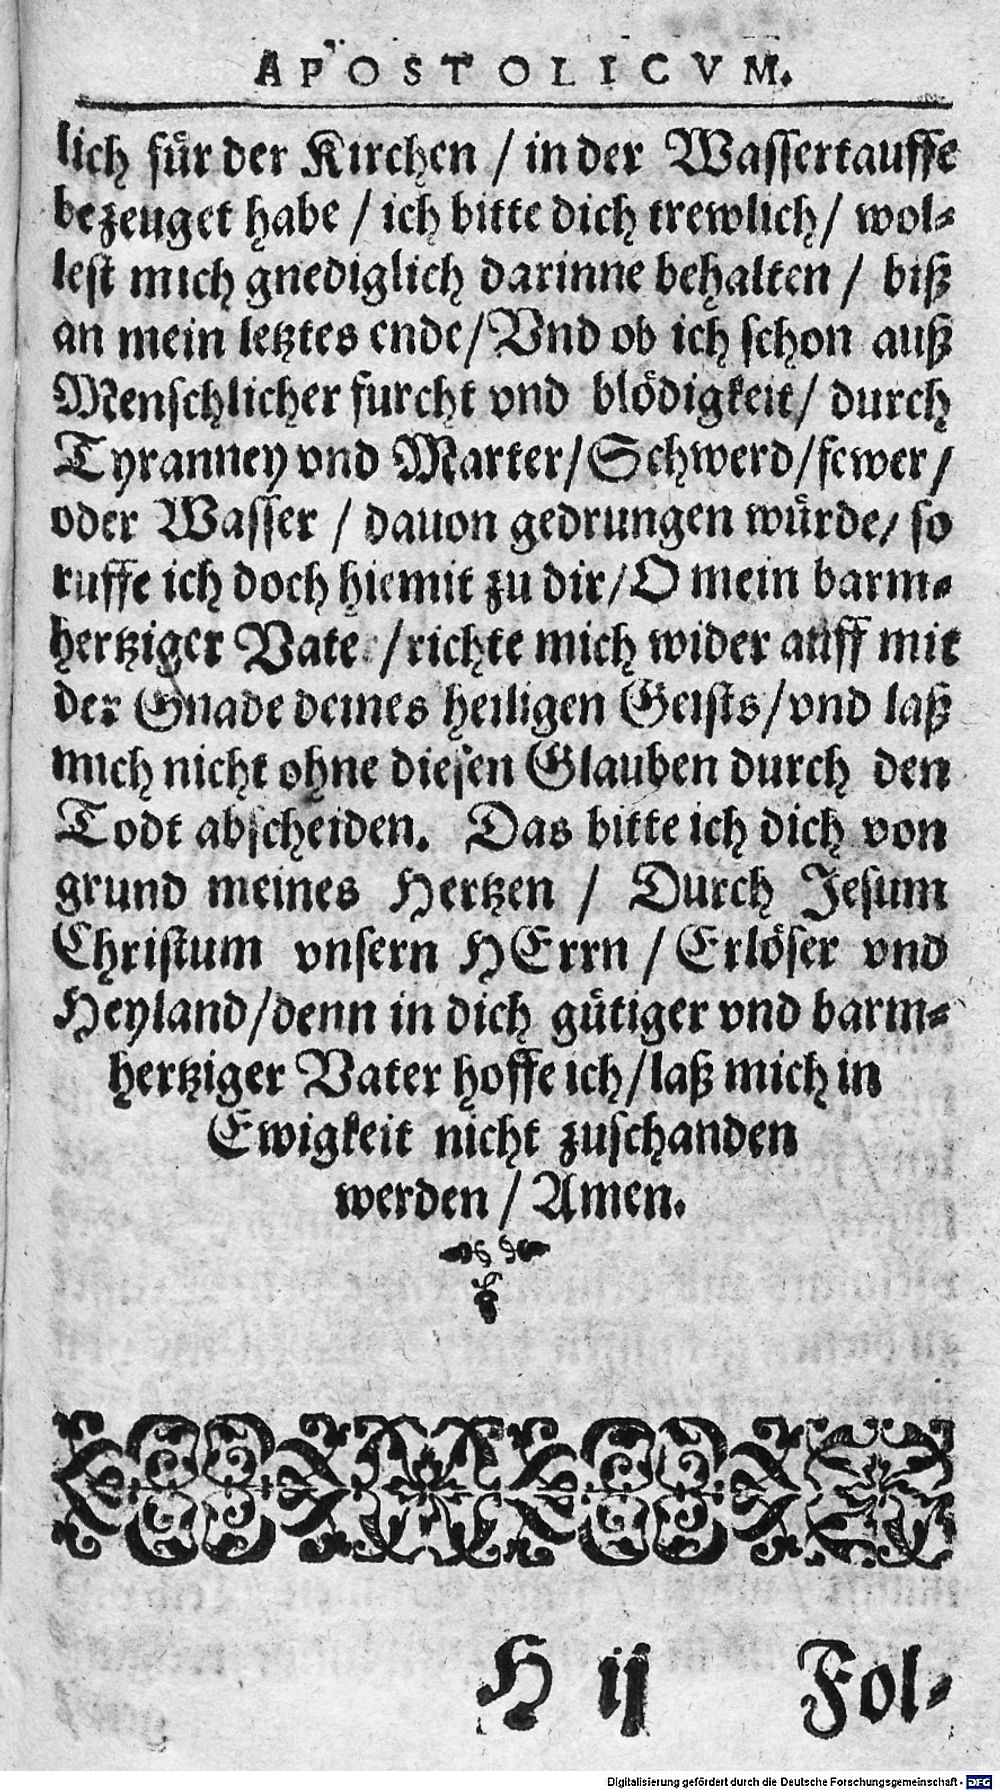 APOSTOLICVM.
lich für der Kirchen / in der Wassertauffe
bezeuget habe / ich bitte dich trewlich / wol-
lest mich gnediglich darinne behalten / biß
an mein letztes ende / Vnd ob ich schon auß
Menschlicher furcht vnd blödigkeit / durch
Tyranney vnd Marter / Schwerd / fewer /
oder Wasser / dauon gedrungen würde / so
ruffe ich doch hiemit zu dir / O mein barm-
hertziger Vater / richte mich wider auff mit
der Gnade deines heiligen Geists / vnd laß
mich nicht ohne diesen Glauben durch den
Todt abscheiden. Das bitte ich dich von
grund meines Hertzen / Durch Jesum
Christum vnsern HErrn / Erlöser vnd
Heyland / denn in dich gütiger vnd barm-
hertziger Vater hoffe ich / laß mich in
Ewigkeit nicht zuschanden
werden / Amen.
H ij Fol-
Digitalisierung gefördert durch die Deutsche Forschungsgemeinschaft - DFG